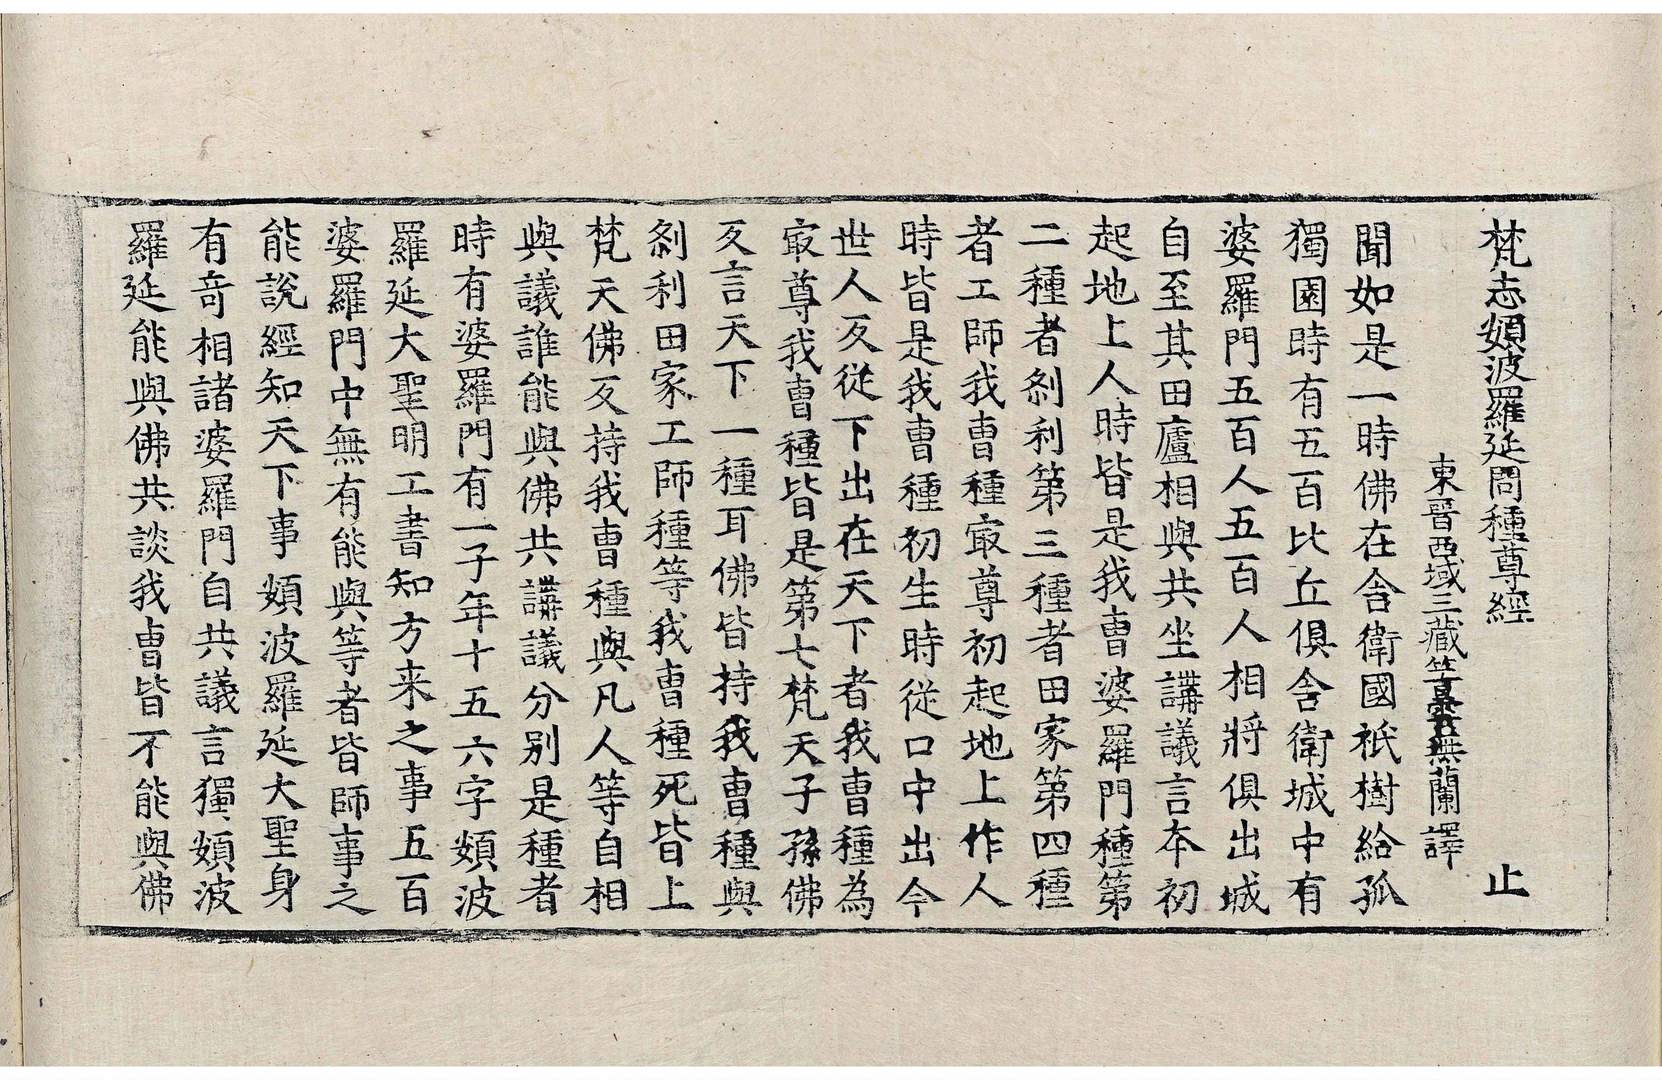 梵志頞波羅延問種尊經 止
東晉西域三藏竺曇無蘭譯
聞如是一時佛在舍衛國祇樹給孤
獨園時有五百比丘俱舍衛城中有
婆羅門五百人五百人相將俱出城
自至其田廬相與共坐講議言本初
起地上人時皆是我曹婆羅門種第
二種者剎利第三種者田家第四種
者工師我曹種冣尊初起地上作人
時皆是我曹種初生時從口中出今
世人反從下出在天下者我曹種為
冣尊我曹種皆是第七梵天子孫佛
反言天下一種耳佛皆持我曹種與
剎利田家工師種等我曹種死皆上
梵天佛反持我曹種與凡人等自相
與議誰能與佛共講議分別是種者
時有婆羅門有一子年十五六字頞波
羅延大聖明工書知方来之事五百
婆羅門中無有能與等者皆師事之
能說經知天下事頞波羅延大聖身
有奇相諸婆羅門自共議言獨頞波
羅延能與佛共談我曹皆不能與佛